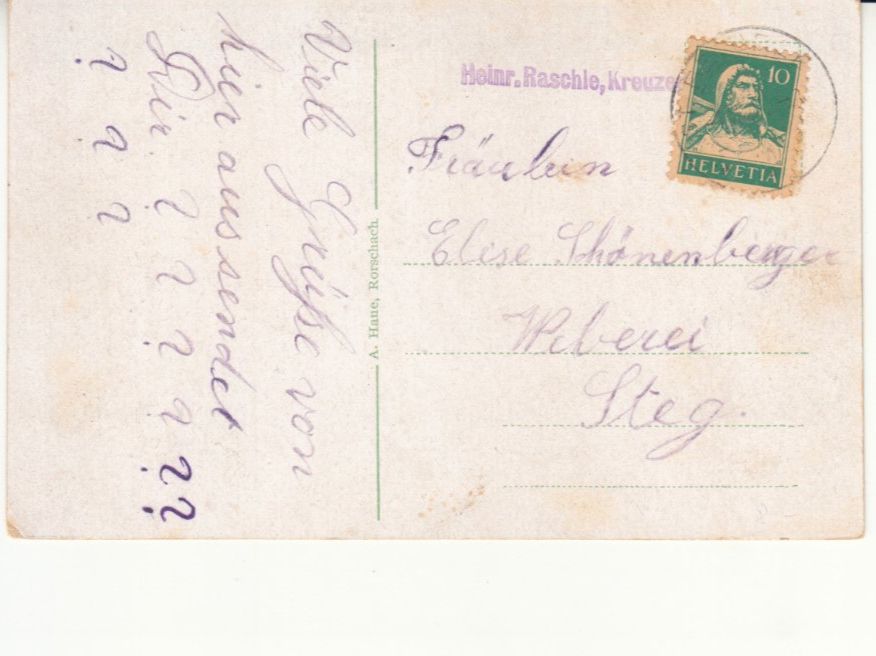 Viele Grüße von
hier aus sendet
Dir ? ? ? ? ? ?
? ? ?
A. Haue, Rorschach.
Heinr. Raschle, Kreuze
10
HELVETIA
Fräulein
Elise Schönenberger
Weberei
Steg.